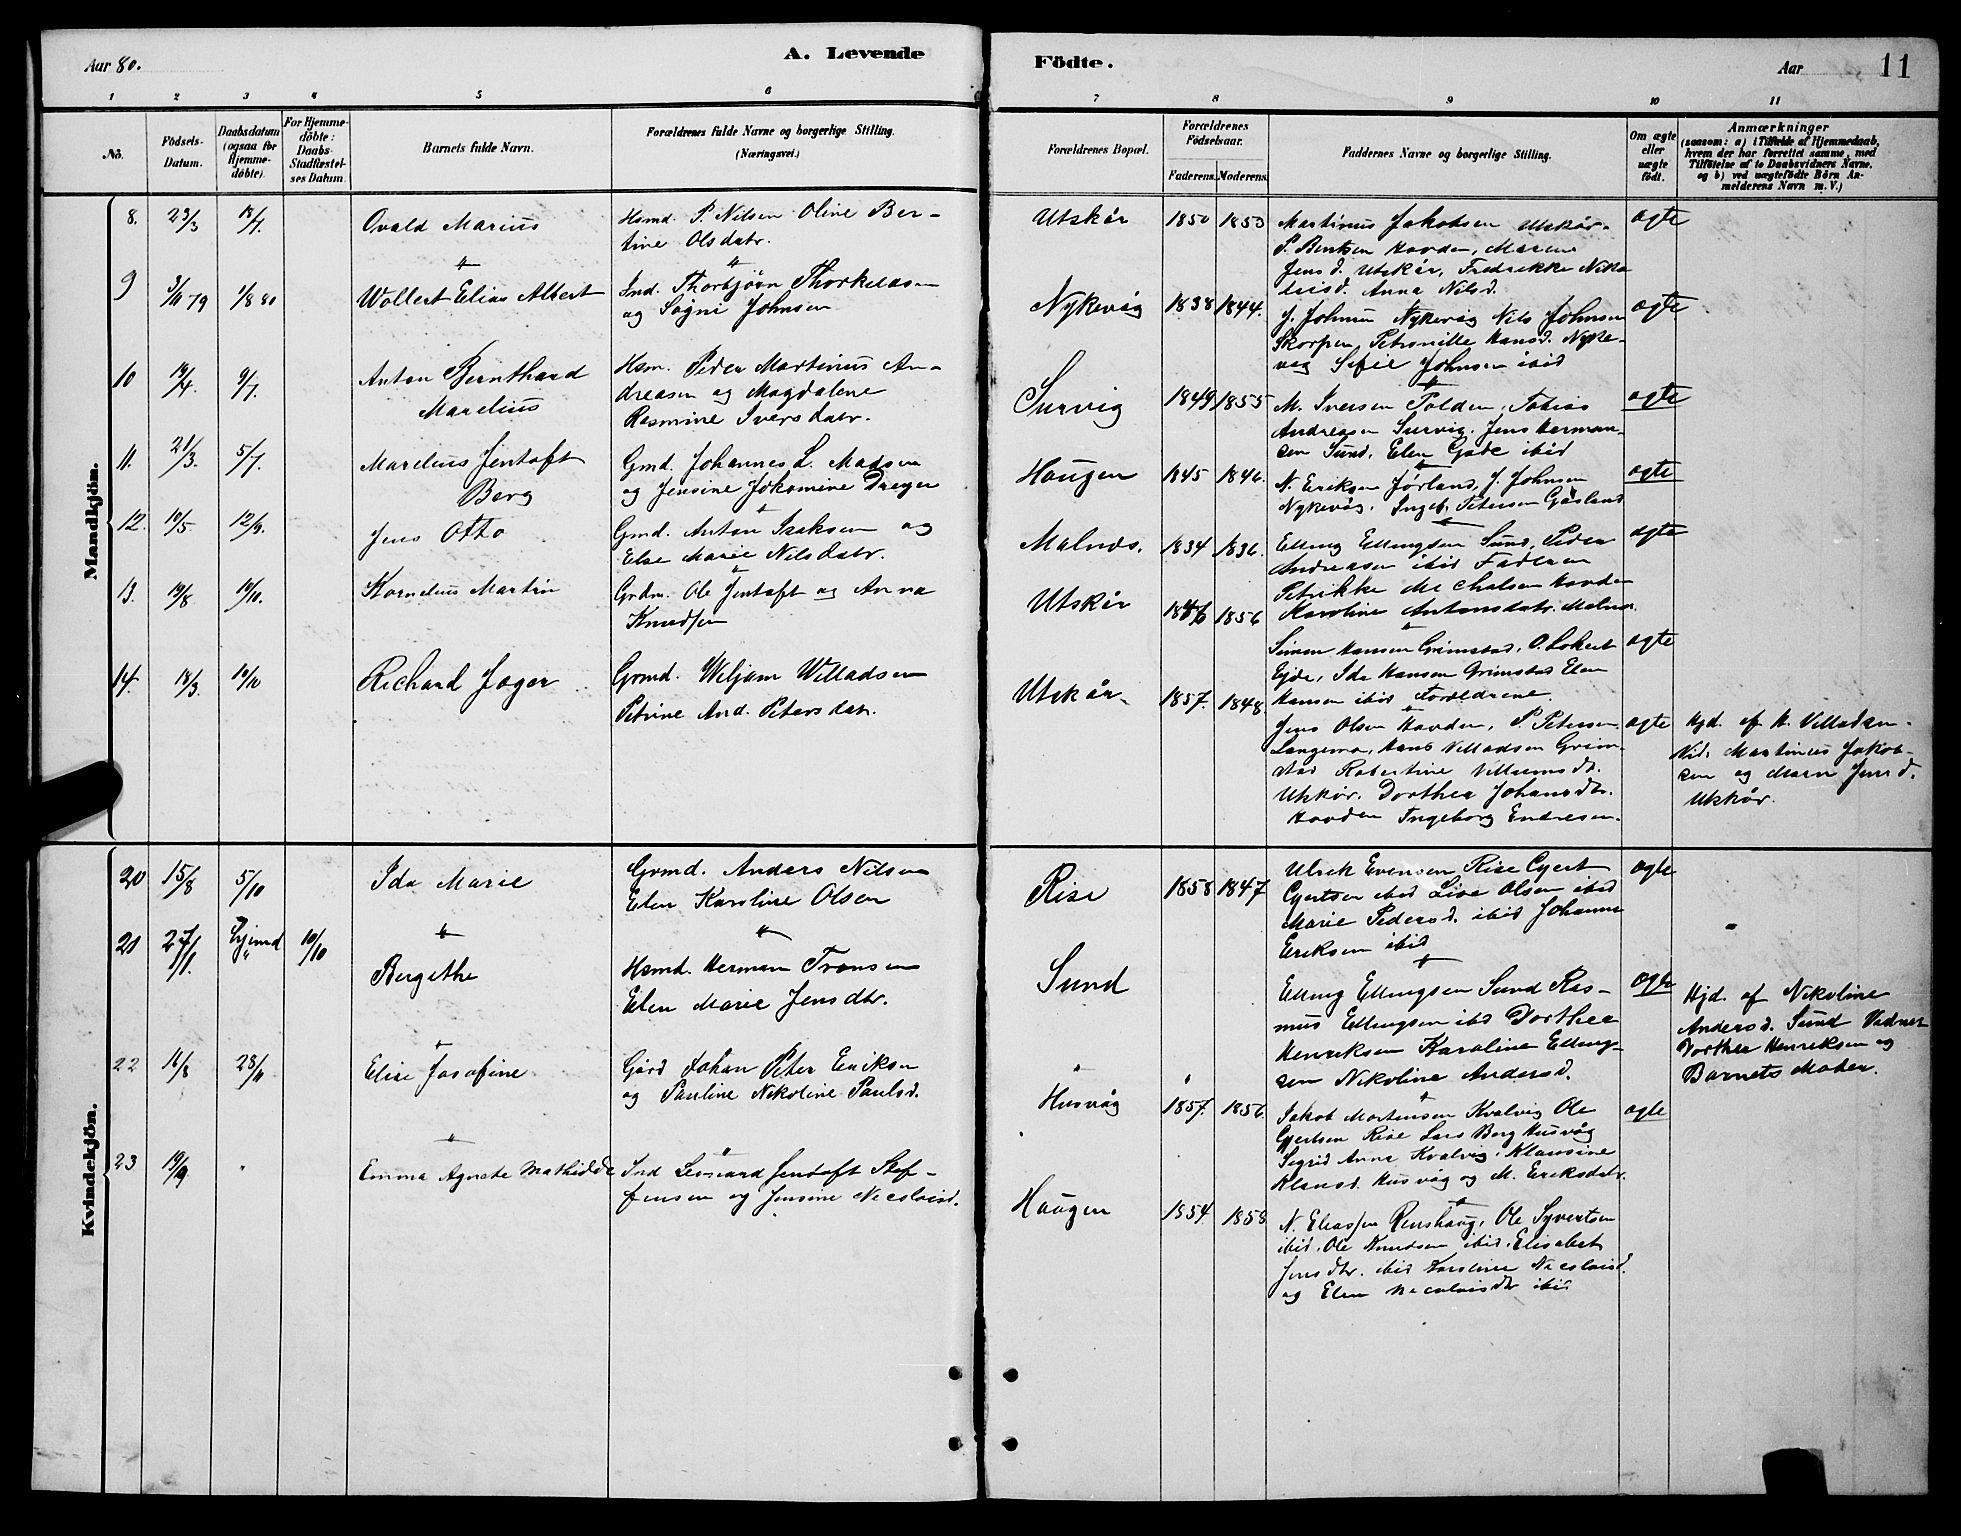 Aar 80.
A. Levende
Födte.
Aar
11
1 2 3 4 5 6 7 8 9 10 11
No.
Födsels-
Datum.
Daabsdatum
(ogsaa for
Hjemme-
döbte).
For Hjemme-
döbte:
Daabs-
Stadfæstel-
ses Datum.
Barnets fulde Navn.
Forældrenes fulde Navne og borgerlige Stilling.
(Næringsvei.)
Forældrenes Bopæl.
Forældrenes
Födselsaar.
Faderens. Moderens.
Faddernes Navne og borgerlige Stilling.
Om ægte
eller
uægte
födt.
Anmærkninger
(saasom: a) i Tilfælde af Hjemmedaab,
hvem der har forrettet samme, med
Tilföielse af to Daabsvidners Navne.
og b) ved uægtefödte Börn An-
melderens Navn m. V.)
Mandkjön.
8. 23/3 18/7. Ovald Marius
Hsmd. P. Nilsen Oline Ber-
tine Olsdatr.
Utskår 1850 1853
Martinus Jakobsen Utskår.
P. Bentsen Hovden, Maren
Jensd. Utskår, Fredrikke Niko
laisd. Anna Nilsd.
ægte
9 3/11 79 1/8 80 Wollert Elias Albert
Ind. Thorbjörn Thorkildsen
og Signe Johnsen
Nykevåg 1838 1844.
J. Johnsen Nykevåg Nils Johnsen
Skorpen, Petronille Hansd. Nyke-
våg Sefie Johnsen ibid
ægte
10 18/4. 9/7. Anton Bernthard
Marelius
Hsm. Peder Martinus An-
dreasen og Magdalene
Rasmine Iversdatr.
Survig 1849 1855
M. Iversen Tolden, Tobias
Andreasen Survig. Jens Herman-
sen Sund. Elen Gode ibid
ægte
11. 21/3. 5/7. Marelius Jentoft
Berg
Gmd. Johannes L. Madsen
og Jensine Jokomine Dreyer
Haugen 1845 1846.
N. Eriksen Jörland, J. Johnsen
Nykevåg. Ingeb. Petersen Gåsland
ægte
12. 10/5. 12/9. Jens Otto
Gmd. Anton Isaksen og
Else Marie Nilsdatr.
Malnes. 1834 1836.
Elling Ellingsen Sund, Peder
Andreasen ibid Faderen
Petrikke Michalsen Hovden
Karoline Antonsdatr. Malnes.
ægte
13. 19/8 10/10. Kornelius Martin
Grdm. Ole Jentoft og Anna
Knudsen
Utskår 1856
Simon Hansen Grimstad, O. Lokert
Ejde, Ida Hansen Grimstad Elen
Hansen ibid Foreldrene
ægte
14. 18/3. 10/10 Richard Jøger
Grmd. Wiljam Willadsen
Petrine And. Petersdatr.
Utskår. 1857. 1848.
Jens Olsen Hovden, P. Petersen
Langemo, Hans Villadsen Grim-
stad Robertine Villumsdt.
Utskår. Dorthea Johansdtr.
Hovden Ingeborg Endresen.
ægte
Hjd. af H. Villadsen-
Vid. Martinus Jakob-
sen og Maren Jensd.
Utskår.
Kvindekjön.
20 15/8 5/10 Ida Marie
Grmd. Anders Nilsen
Elen Karoline Olsen
Rise 1858 1847
Ulrik Evensen Rise Gjert
Gjertsen ibid Live Olsen ibid
Marie Pedersd. ibid Johanna
Eriksen ibid
ægte
21 27/1. Hjemd 10/10 Bergithe
Hsmd. Herman Tronsen
Elen Marie Jensdtr.
Sund
Elling Ellingsen Sund Ras-
mus Ellingsen ibid Dorthea
Henriksen Karoline Elling-
sen Nikoline Andersd.
ægte
Hjd. af Nikoline
Andersd. Sund Vidner
Dorthea Henriksen og
Barnets Moder.
22 16/8 28/11 Elise Josefine
Gård Johan Peter Eriksen
og Pauline Nikoline Paulsd.
Husvåg 1857. 1856.
Jakob Mortensen Kvalvig Ole
Gjertsen Rise Lars Berg Husvåg
Sigrid Anna Kvalvig, Klausine
Klausd. Husvåg og M. Eriksdatr.
ægte
23 19/9 Emma Agnete Mathilde
Ind Leonard Jentoft Stef-
fensen og Jensine Nicolaisd.
Haugen 1854 1858
N. Eliassen Renshaug, Ole Syvertsen
ibid. Ole Knudsen ibid. Elisabet
Jensdtr. ibid Karoline Nicolaisd.
og Elen Nicolaisdtr ibid